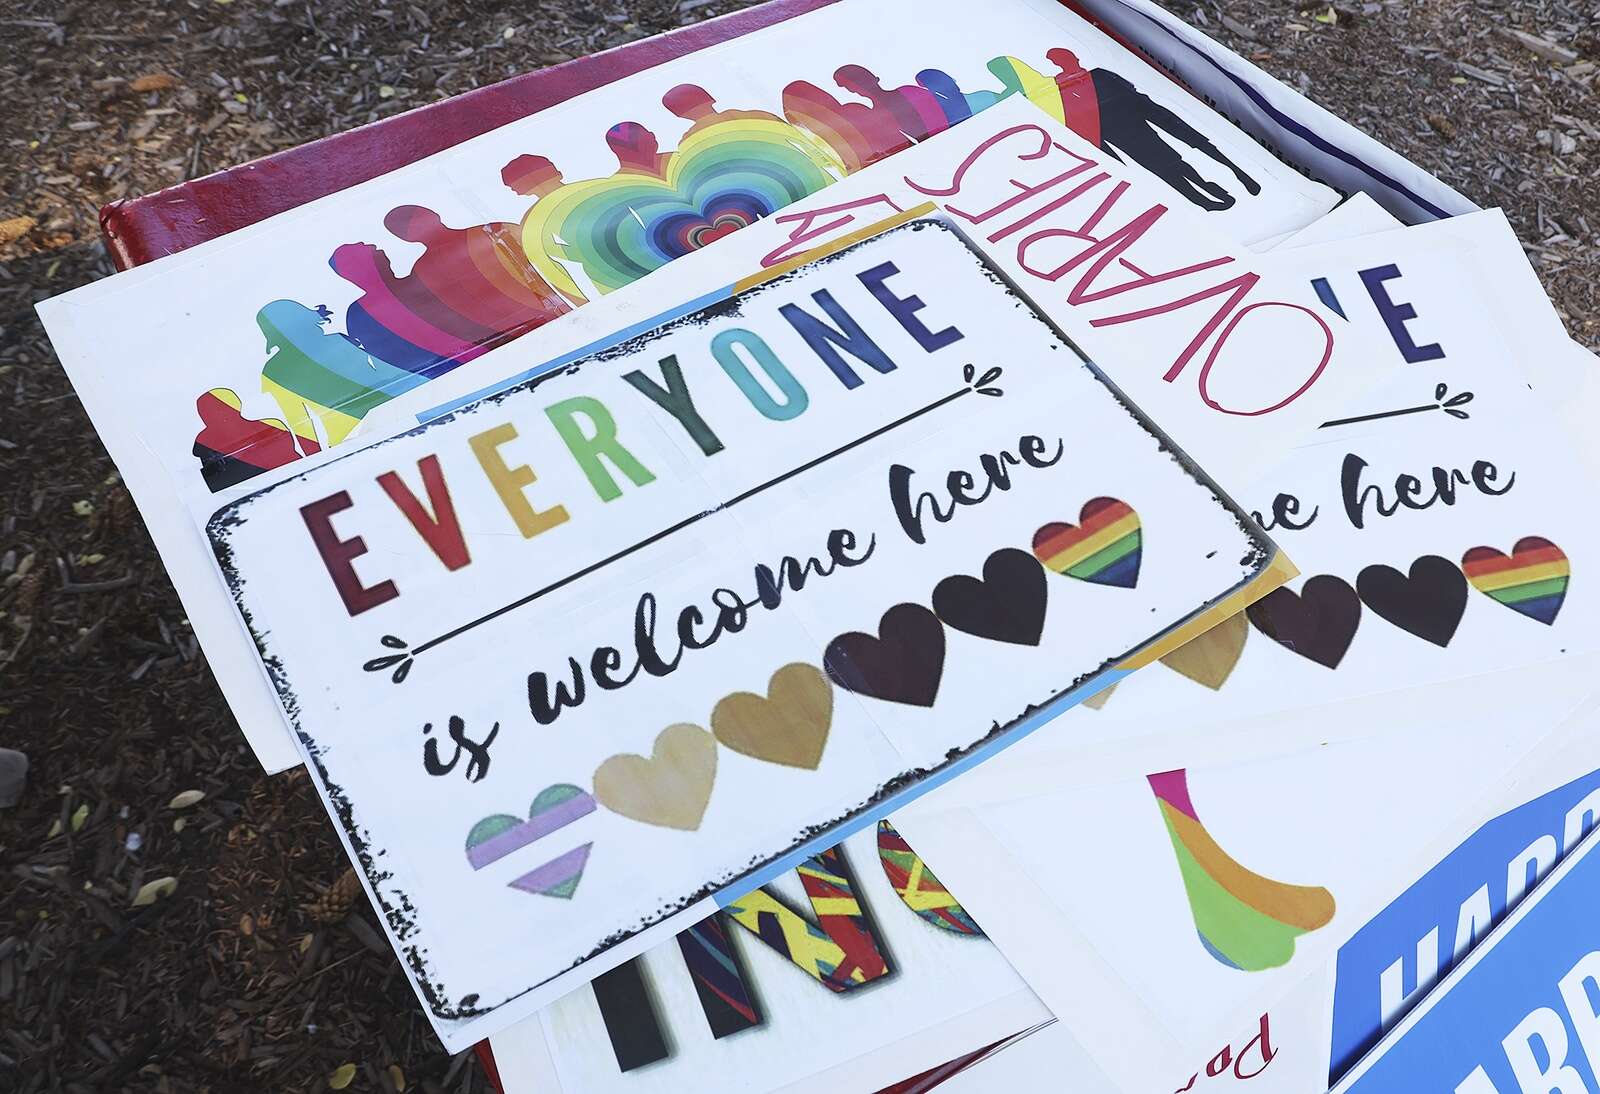 EVERYONE
is welcome here
OVARIES
'E
here
IN
HARR
ARR